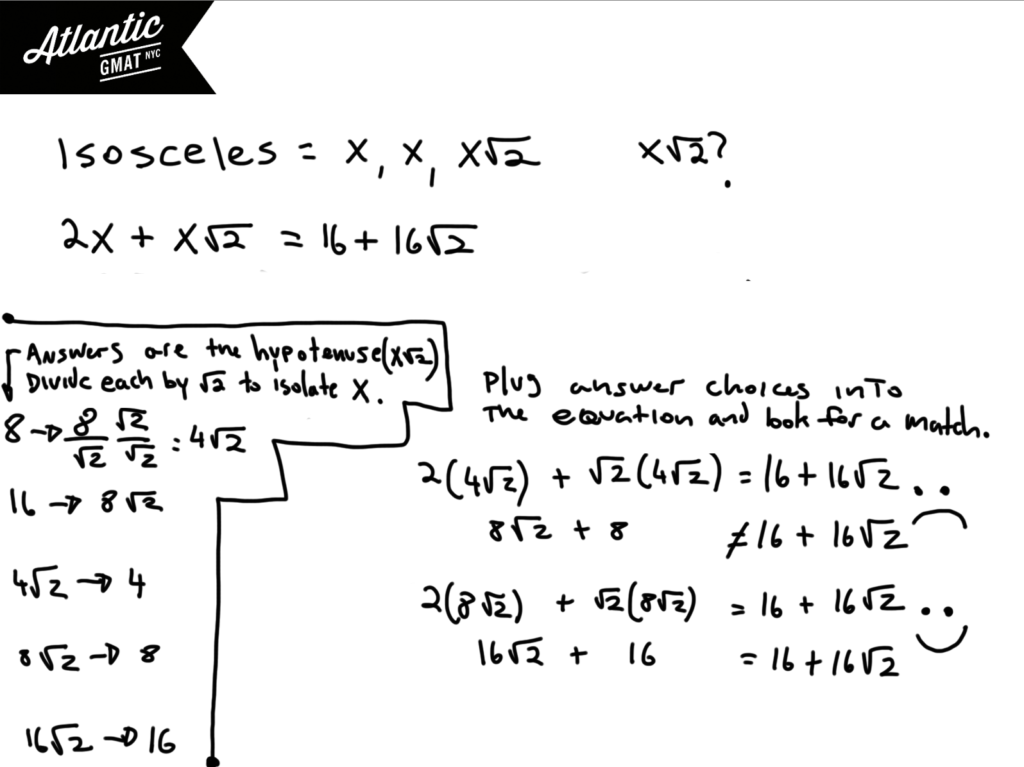 Atlantic
GMAT NYC
Isosceles = x, x, x√2    x√2?
2x + x√2 = 16 + 16√2
Answers are the hypotenuse (x√2)
Divide each by √2 to isolate x.
8 → 8/√2 √2/√2 = 4√2
16 → 8√2
4√2 → 4
8√2 → 8
16√2 → 16
Plug answer choices into
the equation and look for a match.
2(4√2) + √2(4√2) = 16 + 16√2
8√2 + 8 ≠ 16 + 16√2
2(8√2) + √2(8√2) = 16 + 16√2
16√2 + 16 = 16 + 16√2